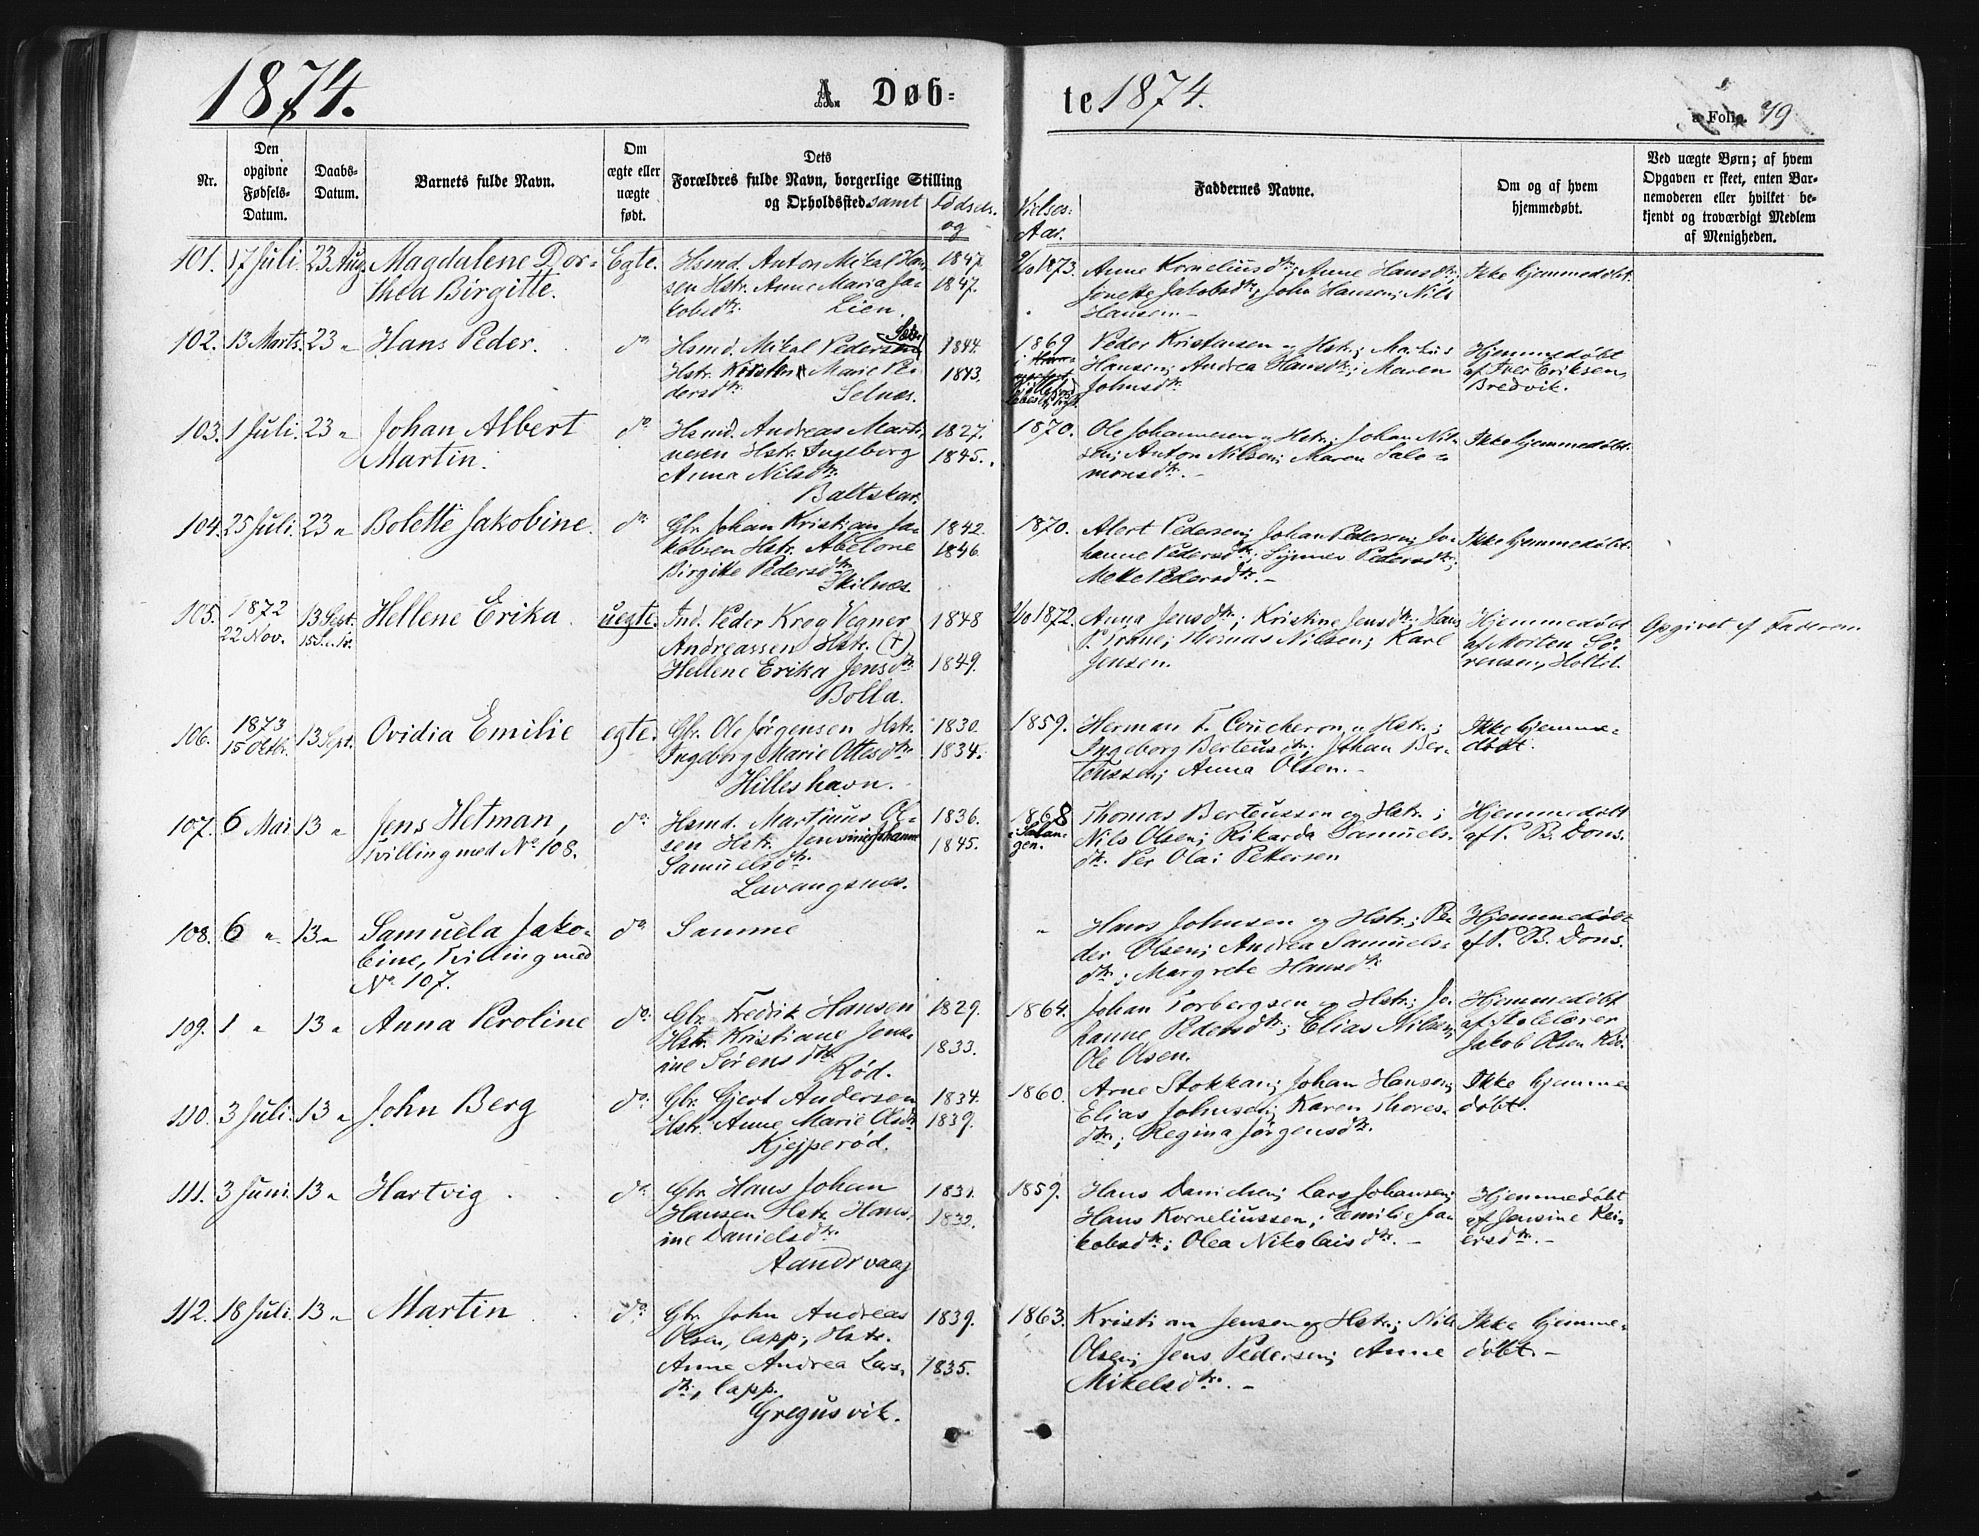 1874.
A. Døb-
te 1874.
Folio. 79
Nr.
Den
opgivne
Fødsels-
Datum.
Daabs-
Datum.
Barnets fulde Navn.
Om
ægte eller
uægte
født.
Dets
Forældres fulde Navn, borgerlige Stilling
og Opholdssted samt
Fødsels-
og
Vielses-
Aar.
Faddernes Navne.
Om og af hvem
hjemmedøbt.
Ved uægte Børn; af hvem
Opgaven er skeet, enten Bar-
nemoderen eller hvilket be-
kjendt og troværdigt Medlem
af Menigheden.
101. 17 Juli. 23 Aug. Magdalene Dor-
thea Birgitte.
Egte.
Hsmd. Anton Mikal Han-
sen Hstr. Anne Maria Ja-
kobsdtr. Lien.
1847
1847.
1873.
Anne Korneliusdtr; Anne Hansdtr;
Jonette Jakobsdtr; John Hansen; Nils
Hansen.
Ikke hjemmedøbt.
102. 13 Marts. 23 " Hans Peder. do
Hsmd. Mikal Pedersen
Hstr. Kirsten Marie Pe-
dersdtr. Selnes.
1844.
1843.
1869
Peder Kristansen og Hstr.; Markus
Hansen; Andrea Hansdtr; Maren
Johnsdtr.
Hjemmedøbt
af Iver Eriksen,
Bredvik.
103. 1 Juli. 23 " Johan Albert
Martin.
do
Hsmd. Andreas Marti-
nesen Hstr. Ingeborg
Anna Nilsdtr.
Baltskar.
1827.
1845.
1870.
Ole Johannesen og Hstr.; Johan Nil-
sen; Anton Nilsen; Maren Salo-
monsdtr.
Ikke hjemmedøbt.
104. 25 Juli. 23 " Bolette Jakobine. do
Gbr. Johan Kristian Ja-
kobsen Hstr. Abelone
Birgitte Pedersdtr.
Skilnes
1842.
1846.
1870.
Alert Pedersen; Johan Pedersen; Jo-
hanne Pedersdtr; Synnev Pedersdtr;
Mette Pedersdtr.
Ikke hjemmedøbt.
105. 1872
22 Nov.
13 Sept.
Hellene Erika.
uegte.
Ind. Peder Krog Vegner
Andreassen Hstr. (+)
Hellene Erika Jensdtr.
Bolla.
1848
1849.
1872.
Anna Jensdtr; Kristine Jensdtr; Hans
P. Trane; Thomas Nilsen; Karl
Jensen.
Hjemmedøbt
af Morten Sø-
rensen, Holtet.
Opgivet af Faderen.
106. 1873
15 Oktb.
13 Sept. Ovidia Emilie egte.
Gbr. Ole Jørgensen Hstr.
Ingeborg Marie Ottesdtr.
Hilleshavn.
1830.
1834.
1859.
Herman F. Coucheron og Hstr.;
Ingeborg Berteusdtr; Johan Ber-
teussen; Anna Olsen.
Ikke hjemme-
døbt.
107. 6 Mai 13 " Jens Hetman,
tvilling med No 108.
do
Hsmd. Martinus Ol-
sen Hstr. Jensine Johanne
Samuelsdtr.
Lavangsnes.
1836.
1845.
1868
i Salan-
gen.
Thomas Berteussen og Hstr.;
Nils Olsen; Rikarda Samuels-
dtr. Per Olai Pettersen
Hjemmedøbt
af P. B. Dons.
108. 6 " 13 " Samuela Jako-
bine, tvilling med
No 107.
do
Samme
"
Hans Johnsen og Hstr.; Pe-
der Olsen; Andrea Samuels-
dtr.; Margrete Hansdtr.
Hjemmedøbt
af P. B. Dons.
109. 1 " 13 " Anna Peroline do
Gbr. Fredrik Hansen
Hstr. Kristiane Jens-
ine Sørensdtr.
Rød.
1829.
1833.
1864.
Johan Torbergsen og Hstr.; Jo-
hanne Pedersdtr; Elias Nilsen;
Ole Olsen.
Hjemmedøbt
af Skolelærer
Jakob Olsen
110. 3 Juli. 13 " John Berg do
Gbr. Gjert Andersen
Hstr. Anne Marie Olsdtr.
Kjejperød.
1834.
1839.
1860.
Arne Stokkan; Johan Hansen;
Elias Johnsen; Karen Thores-
dtr; Regina Jørgensdtr.
Ikke hjemme-
døbt.
111. 3 Juni. 13 " Hartvig do
Gbr. Hans Johan
Hansen Hstr. Hans-
ine Danielsdtr.
Aandrvaag
1831.
1832.
1859.
Hans Danielsen; Lars Johansen;
Hans Korneliussen; Emilie Ja-
kobsdtr; Olea Nikolaisdtr.
Hjemmedøbt
af Jensine Rei-
ersdtr.
112. 18 Juli. 13 " Martin do
Gbr. John Andreas
Olsen, lapp; Hstr.
Anne Andrea Lars-
dtr, lapp.
Gregusvik.
1839.
1835.
1863.
Kristian Jensen og Hstr.; Nils
Olsen; Jens Pedersen; Anne
Mikelsdtr.
Ikke hjemme-
døbt.